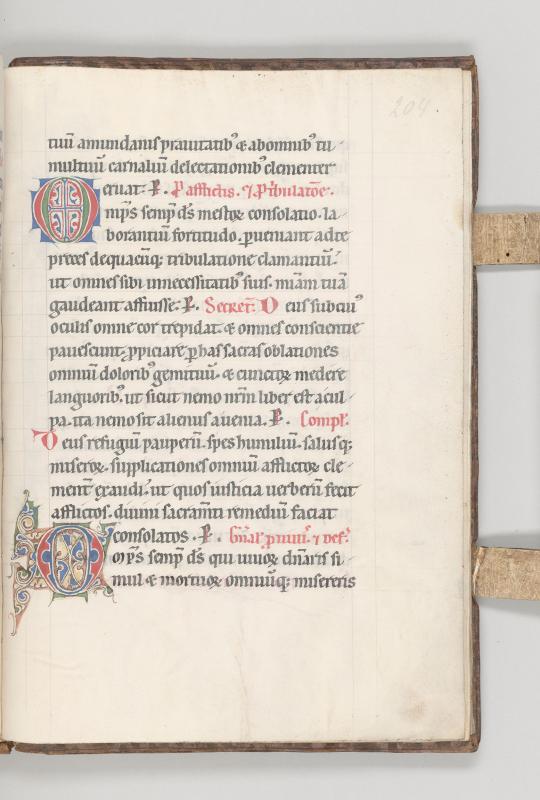 204.
tuū amundanis prauitatib᷒ & abomnib᷒ tu
multuū carnaliū delectationib᷒ clementer
eruat. P̱. P̱ afflictis. ⁊ p̱ tribulatōe.
Omp̄s semp̄ d̄s mestoꝝ consolatio. la
borantiū fortitudo. ꝑueniant ad te
preces de quacūq; tribulatione clamantiū.
ut omnes sibi in necessitatib᷒ suis. miām tuā
gaudeant affuisse. P̱. Secret̄. Deus sub cui᷒
oculis omne cor trepidat. & omnes conscientie
pauescunt. ꝓpiciare ꝑ has sacras oblationes
omniū doloribꝰ gemituū. & cunctoꝝ medere
languorib᷒. ut sicut nemo nr̄m liber est a cul
pa. ita nemo sit alienus a uenia. P̱. Compl̄.
Deus refugiū pauperū. spes humiliū. salusq;
miseroꝝ. supplicationes omniū afflictoꝝ cle
ment̄ exaudi. ut quos iusticia uerberū fecit
afflictos. diuini sacram̄ti remediū faciat
consolatos. P̱.
Omp̄s semp̄ d̄s qui uiuoꝝ dn̄aris si
mul & mortuoꝝ omniūq; misereris